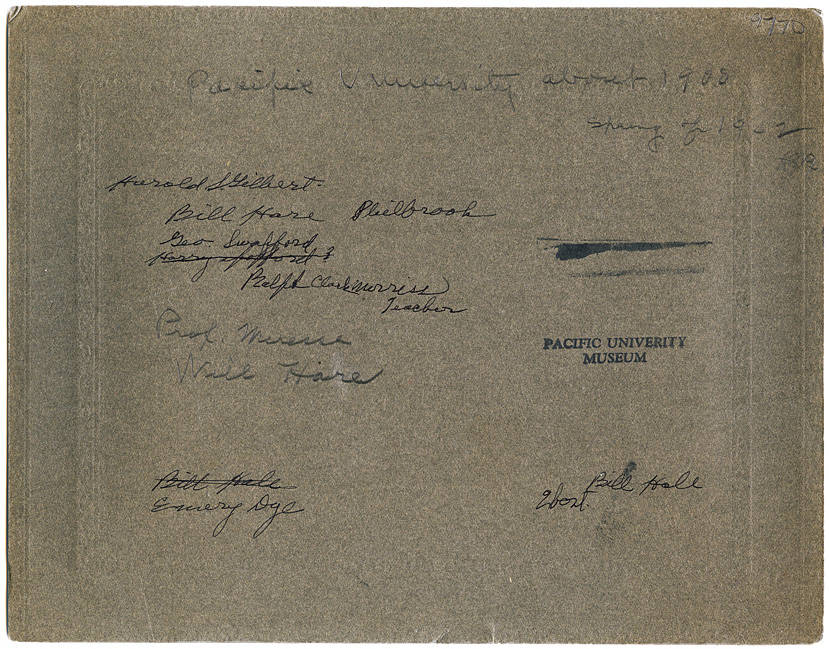 9770
Pacific University about 1908
Spring of
Harold S Gilbert.
Bill Hare Philbrook
Geo Swafford
Harry Spafford ?
Ralph Clark Morriss
Teacher
Prof.
Will Hare
PACIFIC UNIVERITY
MUSEUM
Bill Hale
Emery Dye
Bill Hale